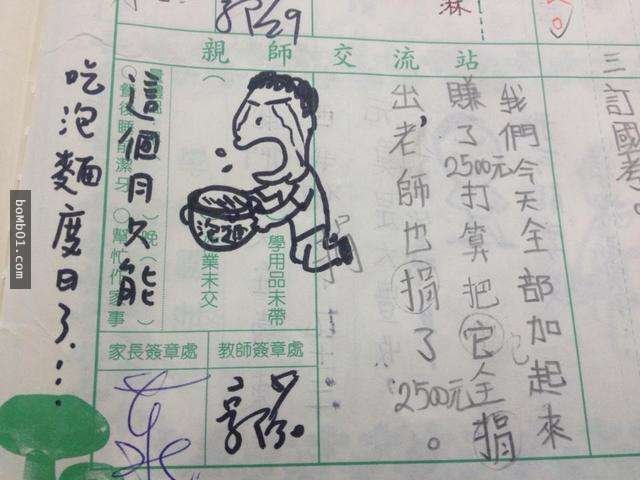 三
訂國考。
親師交流站
我們今天全部加起來
賺了2500元打算把它全捐
出,老師也捐了2500元。
學用品未帶
業未交
這個月只能
吃泡麵度日了...
泡麵
晚
餐後睡前潔牙
幫忙作家事
教師簽章處
家長簽章處
bomb01.com